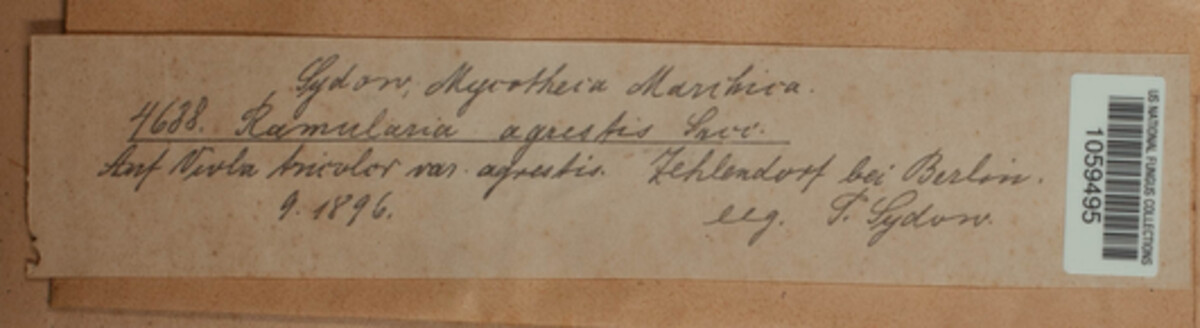 Sydow, Mycotheca Marchica.
4688. Ramularia agrestis Sacc.
Auf Viola tricolor var. agrestis. Zehlendorf bei Berlin.
9. 1896. leg. P. Sydow.
US NATIONAL FUNGUS COLLECTIONS
1059495